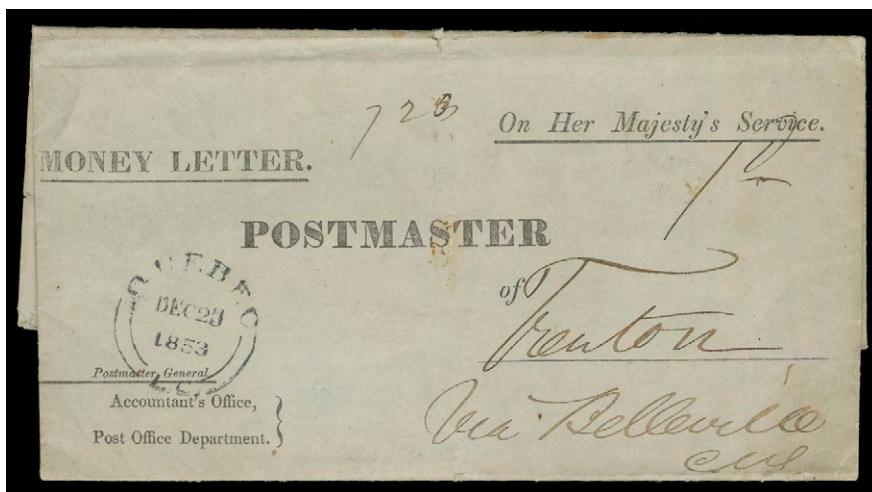 723
On Her Majesty's Service.
MONEY LETTER.
POSTMASTER
of Trenton
QUEBEC
DEC 23
1853
L.C.
Postmaster General.
Accountant's Office,
Post Office Department.
Via Belleville
CW